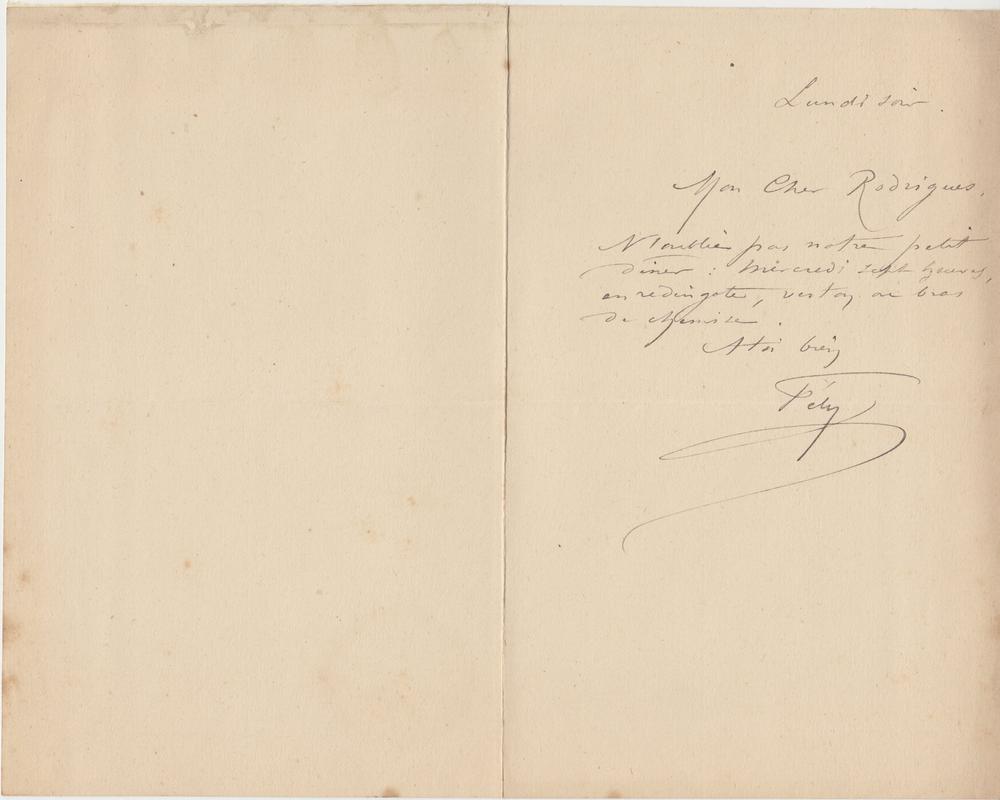 Lundi soir.
Mon Cher Rodrigues,
N'oublie pas notre petit
diner : mercredi sept heures,
en redingote, veston ou bras
de chemise.
A toi bien